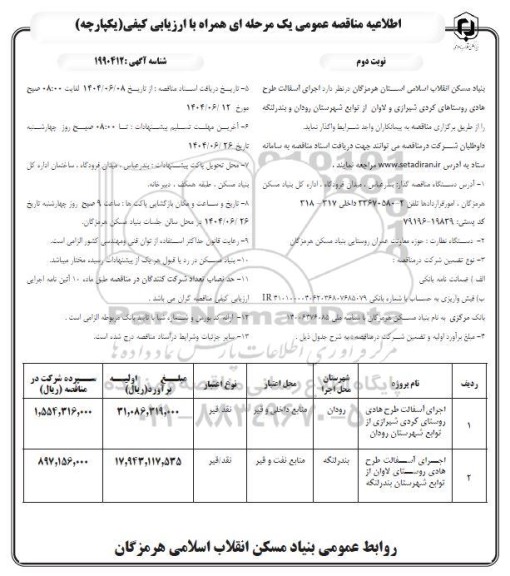 اطلاعیه مناقصه عمومی یک مرحله ای همراه با ارزیابی کیفی(یکپارچه)
نوبت دوم
شناسه آگهی: ۱۹۹۰۴۱۲
بنیاد مسکن انقلاب اسلامی استان هرمزگان درنظر دارد اجرای آسفالت طرح
هادی روستاهای کردی شیرازی و لاوان از توابع شهرستان رودان و بندرلنگه
را از طریق برگزاری مناقصه به پیمانکاران واجد شرایط واگذار نماید.
داوطلبان شرکت درمناقصه می توانند جهت دریافت اسناد مناقصه به سامانه
ستاد به آدرس www.setadiran.ir مراجعه نمایند.
۱- آدرس دستگاه مناقصه گذار: بندرعباس، میدان فرودگاه، اداره کل بنیاد مسکن
هرمزگان، امورقراردادها تلفن ۲-۳۳۶۷۰۵۸۰ داخلی ۲۱۷ - ۲۱۸
کد پستی: ۱۹۸۳۹-۷۹۱۹۶
۲- دستگاه نظارت: حوزه معاونت عمران روستایی بنیاد مسکن هرمزگان
۳- نوع تضمین شرکت درمناقصه:
الف) ضمانت نامه بانکی
ب) فیش واریزی به حساب با شماره بانکی
بانک مرکزی به نام بنیاد مسکن هرمزگان با شناسه ملی ۱۴۰۰۶۳۷۶۰۸۵
۴- مبلغ برآورد اولیه و تضمین شرکت درمناقصه: به شرح جدول ذیل.
۵- تاریخ دریافت اسناد مناقصه: از تاریخ ۱۴۰۴/۰۶/۰۸ لغایت ۰۸:۰۰ صبح
مورخ ۱۴۰۴/۰۶/۱۲
۶- آخرین مهلت تسلیم پیشنهادات: تا ۰۸:۰۰ صبح روز چهارشنبه
تاریخ ۱۴۰۴/۰۶/۲۶
۷- محل تحویل پاکت پیشنهادات: بندرعباس، میدان فرودگاه، ساختمان اداره کل
بنیاد مسکن، طبقه همکف، دبیرخانه.
۸- تاریخ و ساعت و مکان بازگشایی پاکت ها: ساعت ۹ صبح روز چهارشنبه تاریخ
۱۴۰۴/۰۶/۲۶ در محل سالن جلسات بنیاد مسکن هرمزگان.
۹- رعایت قانون حداکثر استفاده از توان فنی ومهندسی کشور الزامی است.
۱۰- بنیاد مسکن در رد یا قبول هر یک از پیشنهادات رسیده مختار میباشد.
۱۱- حد نصاب تعداد شرکت کنندگان در مناقصه طبق ماده ۱۰ آئین نامه اجرایی
ارزیابی کیفی مناقصه گران می باشد.
۱۳- سایر جزئیات وشرایط دراسناد مناقصه درج شده است.
ردیف نام پروژه شهرستان محل اجرا محل اعتبار نوع اعتبار مبلغ اولیه برآورد(ریال) سپرده شرکت در مناقصه (ریال)
۱ اجرای آسفالت طرح هادی روستای کردی شیرازی از توابع شهرستان رودان رودان منابع داخلی و قیر نقد قیر ۳۱,۰۸۶,۳۱۹,۰۰۰ ۱,۵۵۴,۳۱۶,۰۰۰
۲ اجرای آسفالت طرح هادی روستای لاوان از توابع شهرستان بندرلنگه بندرلنگه منابع نفت و قیر نقد/قیر ۱۷,۹۴۳,۱۱۷,۵۳۵ ۸۹۷,۱۵۶,۰۰۰
روابط عمومی بنیاد مسکن انقلاب اسلامی هرمزگان
ParsNamadData
مرکز فرآوری اطلاعات پارس نماد داده ها
۰۲۱-۸۸۳۴۹۶۷۰-۵